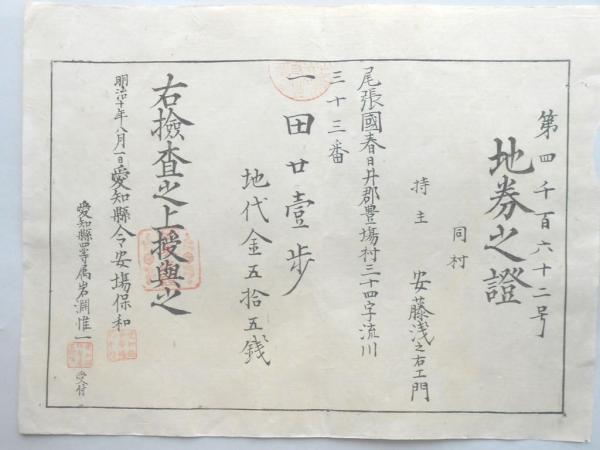 第四千百六十二号
地券之證
同村
持主 安藤浅之右エ門
尾張國春日井郡豊場村三十四字流川
三十三番
一田廿壹歩
地代金五拾五錢
右撿査之上授與之
明治十年八月一日愛知縣令安場保和
愛知縣四等属岩淵惟一 受付